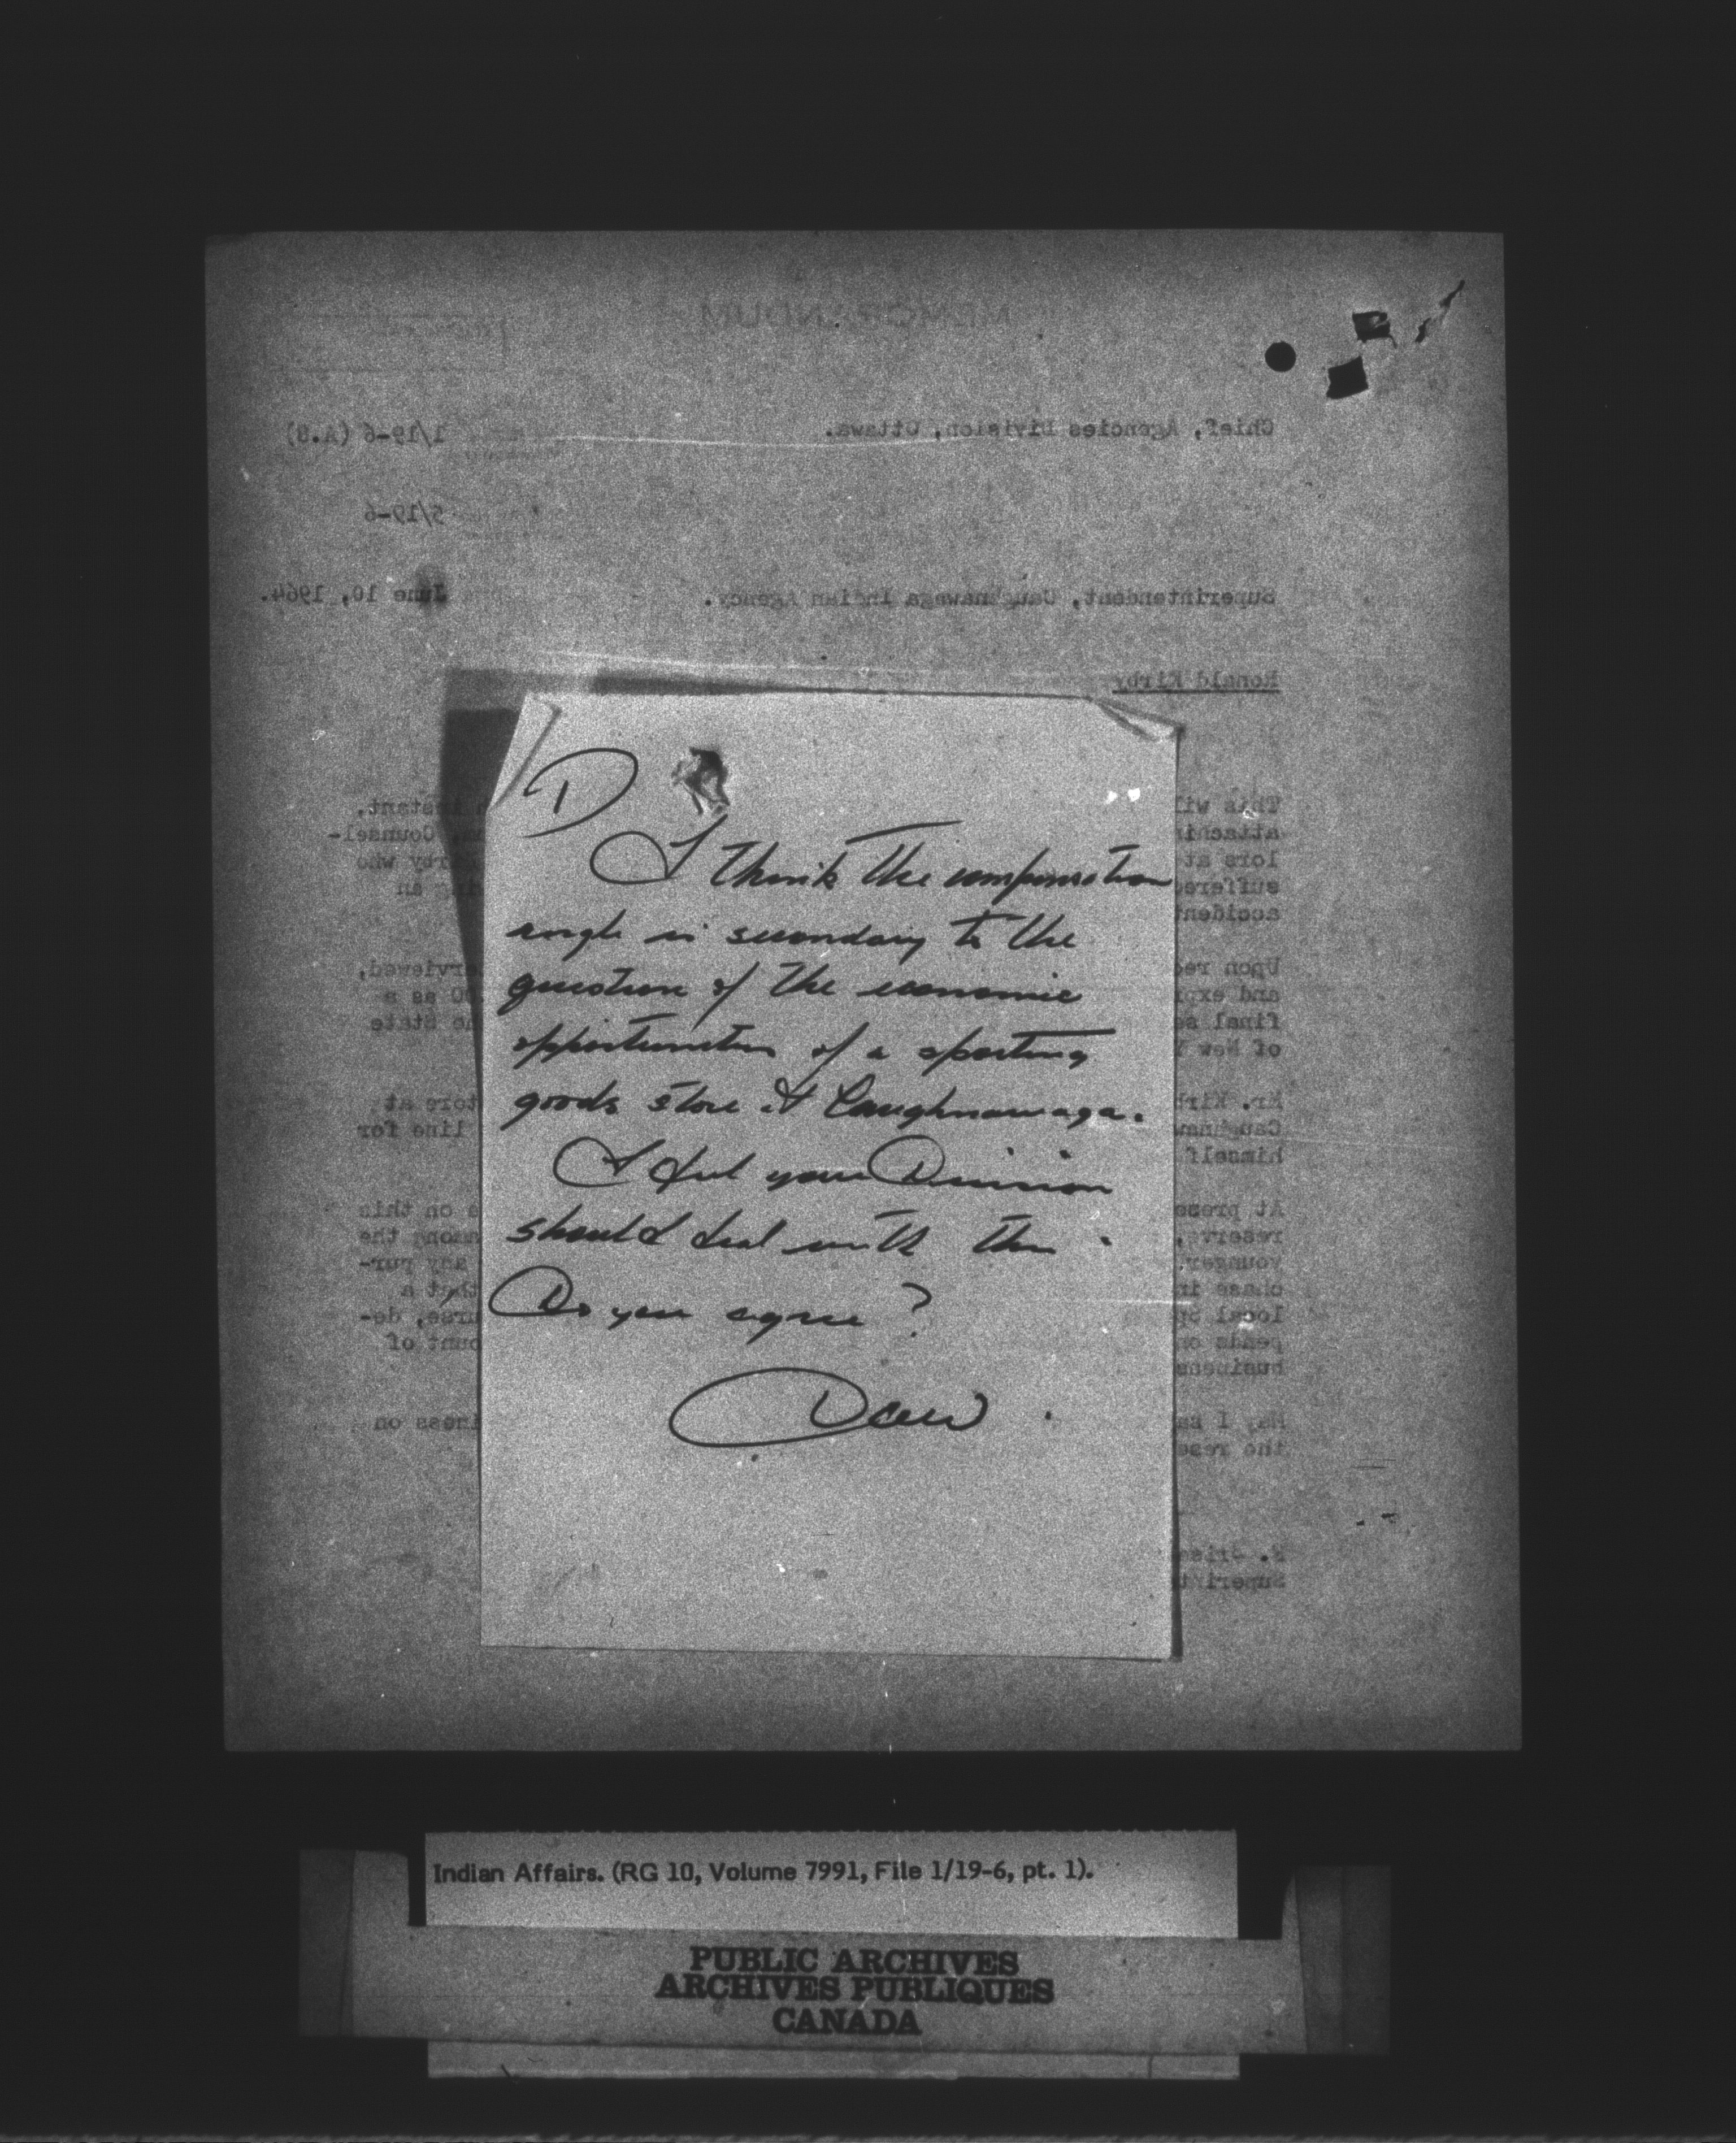 MEMORANDUM
Chief, Agencies Division, Ottawa.
1/19-6 (A.8)
5/19-6
Superintendent, Caughnawaga Indian Agency.
June 10, 1964.
Ronald Kirby
This wil
instant,
attachi
Counsel-
lors at
rby who
suffered
ing an
accident
Upon rec
erviewed,
and exp
00 as a
final se
he State
of New Y
Mr. Kirb
tore at
Caughnaw
line for
himself
At prese
e on this
reserve,
among the
younger
any pur-
chase in
that a
local sp
urse, de-
pends on
ount of
business
May I ha
iness on
the rese
Superint
D
I think the compensation
angle is secondary to the
question of the economic
opportunities of a sporting
goods store at Caughnawaga.
I feel your Division
should deal with this.
Do you agree?
Indian Affairs. (RG 10, Volume 7991, File 1/19-6, pt. 1).
PUBLIC ARCHIVES
ARCHIVES PUBLIQUES
CANADA